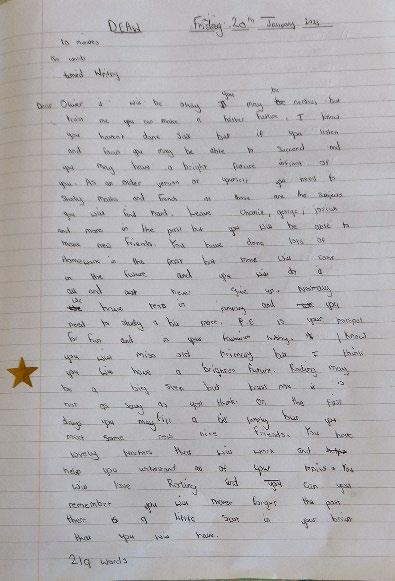 DEAW Friday 20th January 2023
10 minutes
words
timed writing
Dear Oliver it will be okay you may be nervous but
trust me you can make a better future. I know
you havent done Sat but if you listen
and focus you may be able to succeed and
you may have a bright future infront of
you. As an older version of yourself you need to
study maths and french as those are the subjects
you will find hard. Leave Charlie, george,
and more in the past but you will be able to
make new friends. You have done lots of
homework in the past but more will come
in the future and you will do it
all and not never give up. Normally
we have tests in primary and you
need to study a bit more. P.E is your
for fun and is your I know
you will miss old primary but I think
you will have a brighter future. Roding may
be a big step but trust me it is
not as scary as you think. On the first
days you may feel a bit lonely but you
meet some new nice friends. You have
lovely teachers that will work and
help you understand all of your You
will love Roding and you can just
remember you will never forget the past
there is a little spot in your brain
that you will have.
219 words